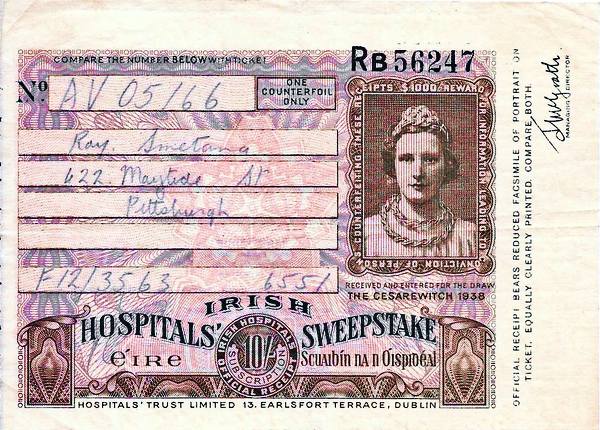 COMPARE THE NUMBER BELOW WITH TICKET
RB 56247
Nº AV 05/66
ONE COUNTERFOIL ONLY
Ray. Smetana
622. Maytide St
Pittsburgh
F12/3563 6551
RECEIPTS $1000 REWARD FOR INFORMATION LEADING TO CONVICTION OF PERSONS COUNTERFEITING THESE
RECEIVED AND ENTERED FOR THE DRAW
THE CESAREWITCH 1938
IRISH
HOSPITALS' SWEEPSTAKE
éIRE
Scuaibín na n Oispidéal
IRISH HOSPITALS
10/-
SUBSCRIPTION
OFFICIAL RECEIPT
HOSPITALS' TRUST LIMITED 13. EARLSFORT TERRACE, DUBLIN
OFFICIAL RECEIPT BEARS REDUCED FACSIMILE OF PORTRAIT ON
TICKET. EQUALLY CLEARLY PRINTED. COMPARE BOTH.
MANAGING DIRECTOR